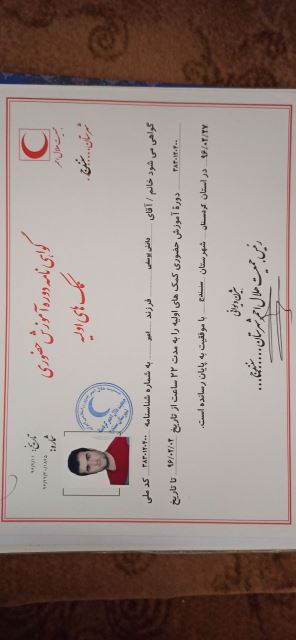 جمعیت هلال احمر
شهرستان ..... سنندج .
گواهی نامه دوره آموزش حضوری
کمک های اولیه
تاریخ:
شماره:
گواهی می شود خانم / آقای دانش یوسفی فرزند امیر به شماره شناسنامه ۳۸۳۰۱۲۰۴۰۰ کد ملی
۳۸۳۰۱۲۰۴۰۰ دوره آموزش حضوری کمک های اولیه را به مدت ۲۲ ساعت از تاریخ ۹۶/۰۲/۰۲ تا تاریخ
۹۶/۰۲/۲۷ در استان کردستان شهرستان سنندج با موفقیت به پایان رسانده است.
رئیس جمعیت هلال احمر شهرستان ..... سنندج ...